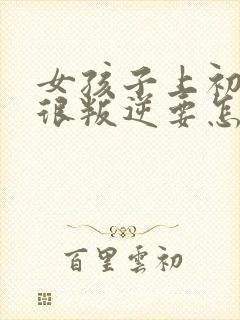 女孩子上初
很叛逆要怎
百里雲初